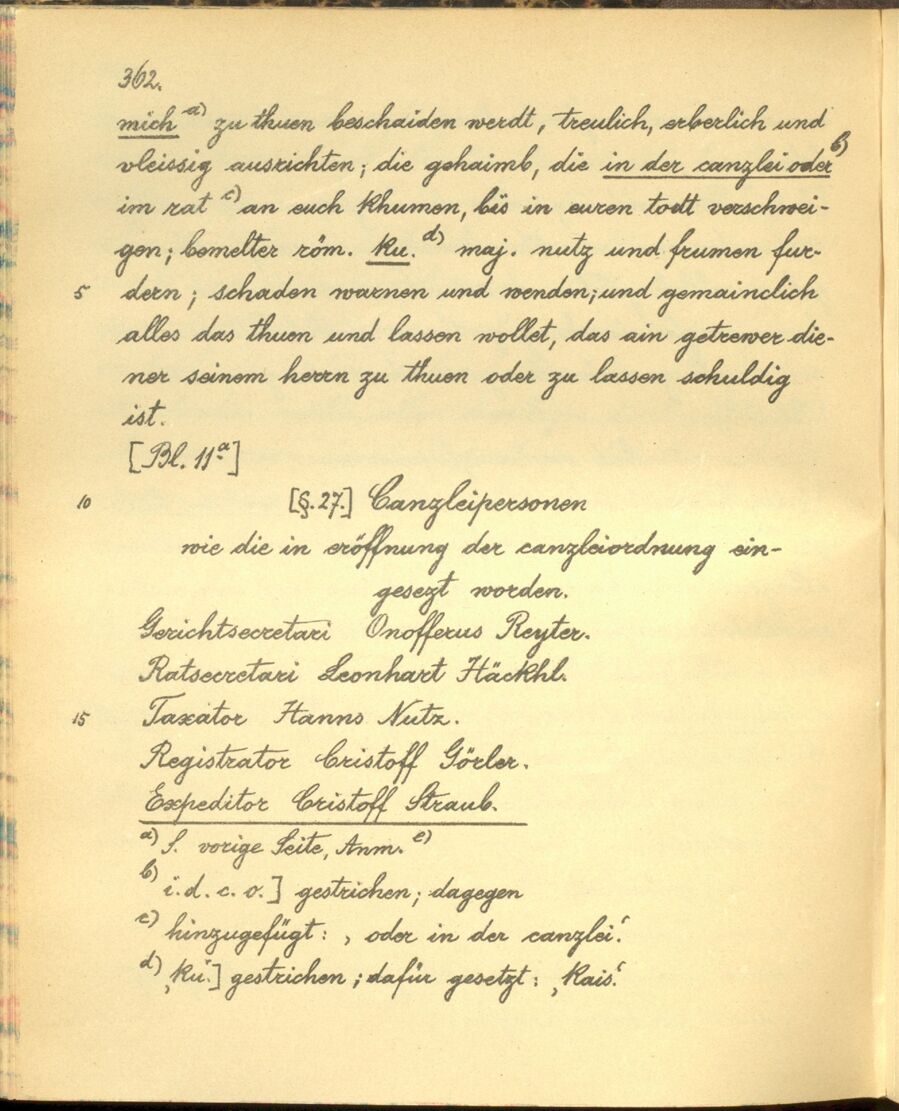 362.
mich a) zu thuen beschaiden werdt, treulich, erberlich und
vleissig ausrichten; die gehaimb, die in der canzlei oder b)
im rat c) an euch khumen, bis in euren todt verschwei-
gen; bemelter röm. ku. d) maj. nutz und frumen fur-
5 dern; schaden warnen und wenden; und gemainclich
alles das thuen und lassen wollet, das ain getrewer die-
ner seinem herrn zu thuen oder zu lassen schuldig
ist.
[Bl. 11a]
10 [§. 27.] Canzleipersonen
wie die in eröffnung der canzleiordnung ein-
gesezt worden.
Gerichtsecretari Onofferus Reyter.
Ratsecretari Leonhart Häckhl.
15 Taxator Hanns Nutz.
Registrator Cristoff Görler.
Expeditor Cristoff Straub.
a) S. vorige Seite, Anm. e)
b) i. d. c. o.] gestrichen; dagegen
c) hinzugefügt: ‚ oder in der canzlei‘.
d) ‚ku.‘] gestrichen; dafür gesetzt: ‚Kais.‘